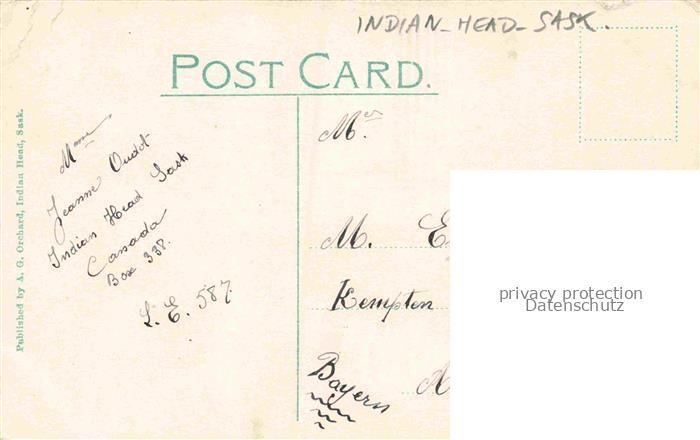 INDIAN_HEAD_SASK.
POST CARD.
Published by A. G. Orchard, Indian Head, Sask.
Mme
Jeanne Oudot
Indian Head Sask
Canada
Box 338.
L. E. 587.
M.
M. E
Kempten
Bayern
A
privacy protection
Datenschutz